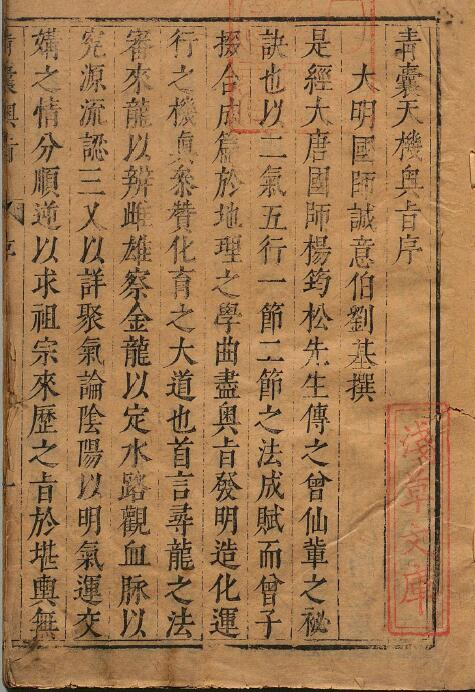 青囊天機奥旨序
大明國師誠意伯劉基撰
是經大唐國師楊筠松先生傳之曾仙輩之祕
訣也以二氣五行一節二節之法成賦而曾子
掇合成篇於地理之學曲盡奥旨發明造化運
行之機眞叅贊化育之大道也首言尋龍之法
審來龍以辨雌雄察金龍以定水路觀血脉以
究源流認三叉以詳聚氣論陰陽以明氣運交
媾之情分順逆以求祖宗來歷之旨於堪輿無
青囊奥旨
序
一
淺草文庫